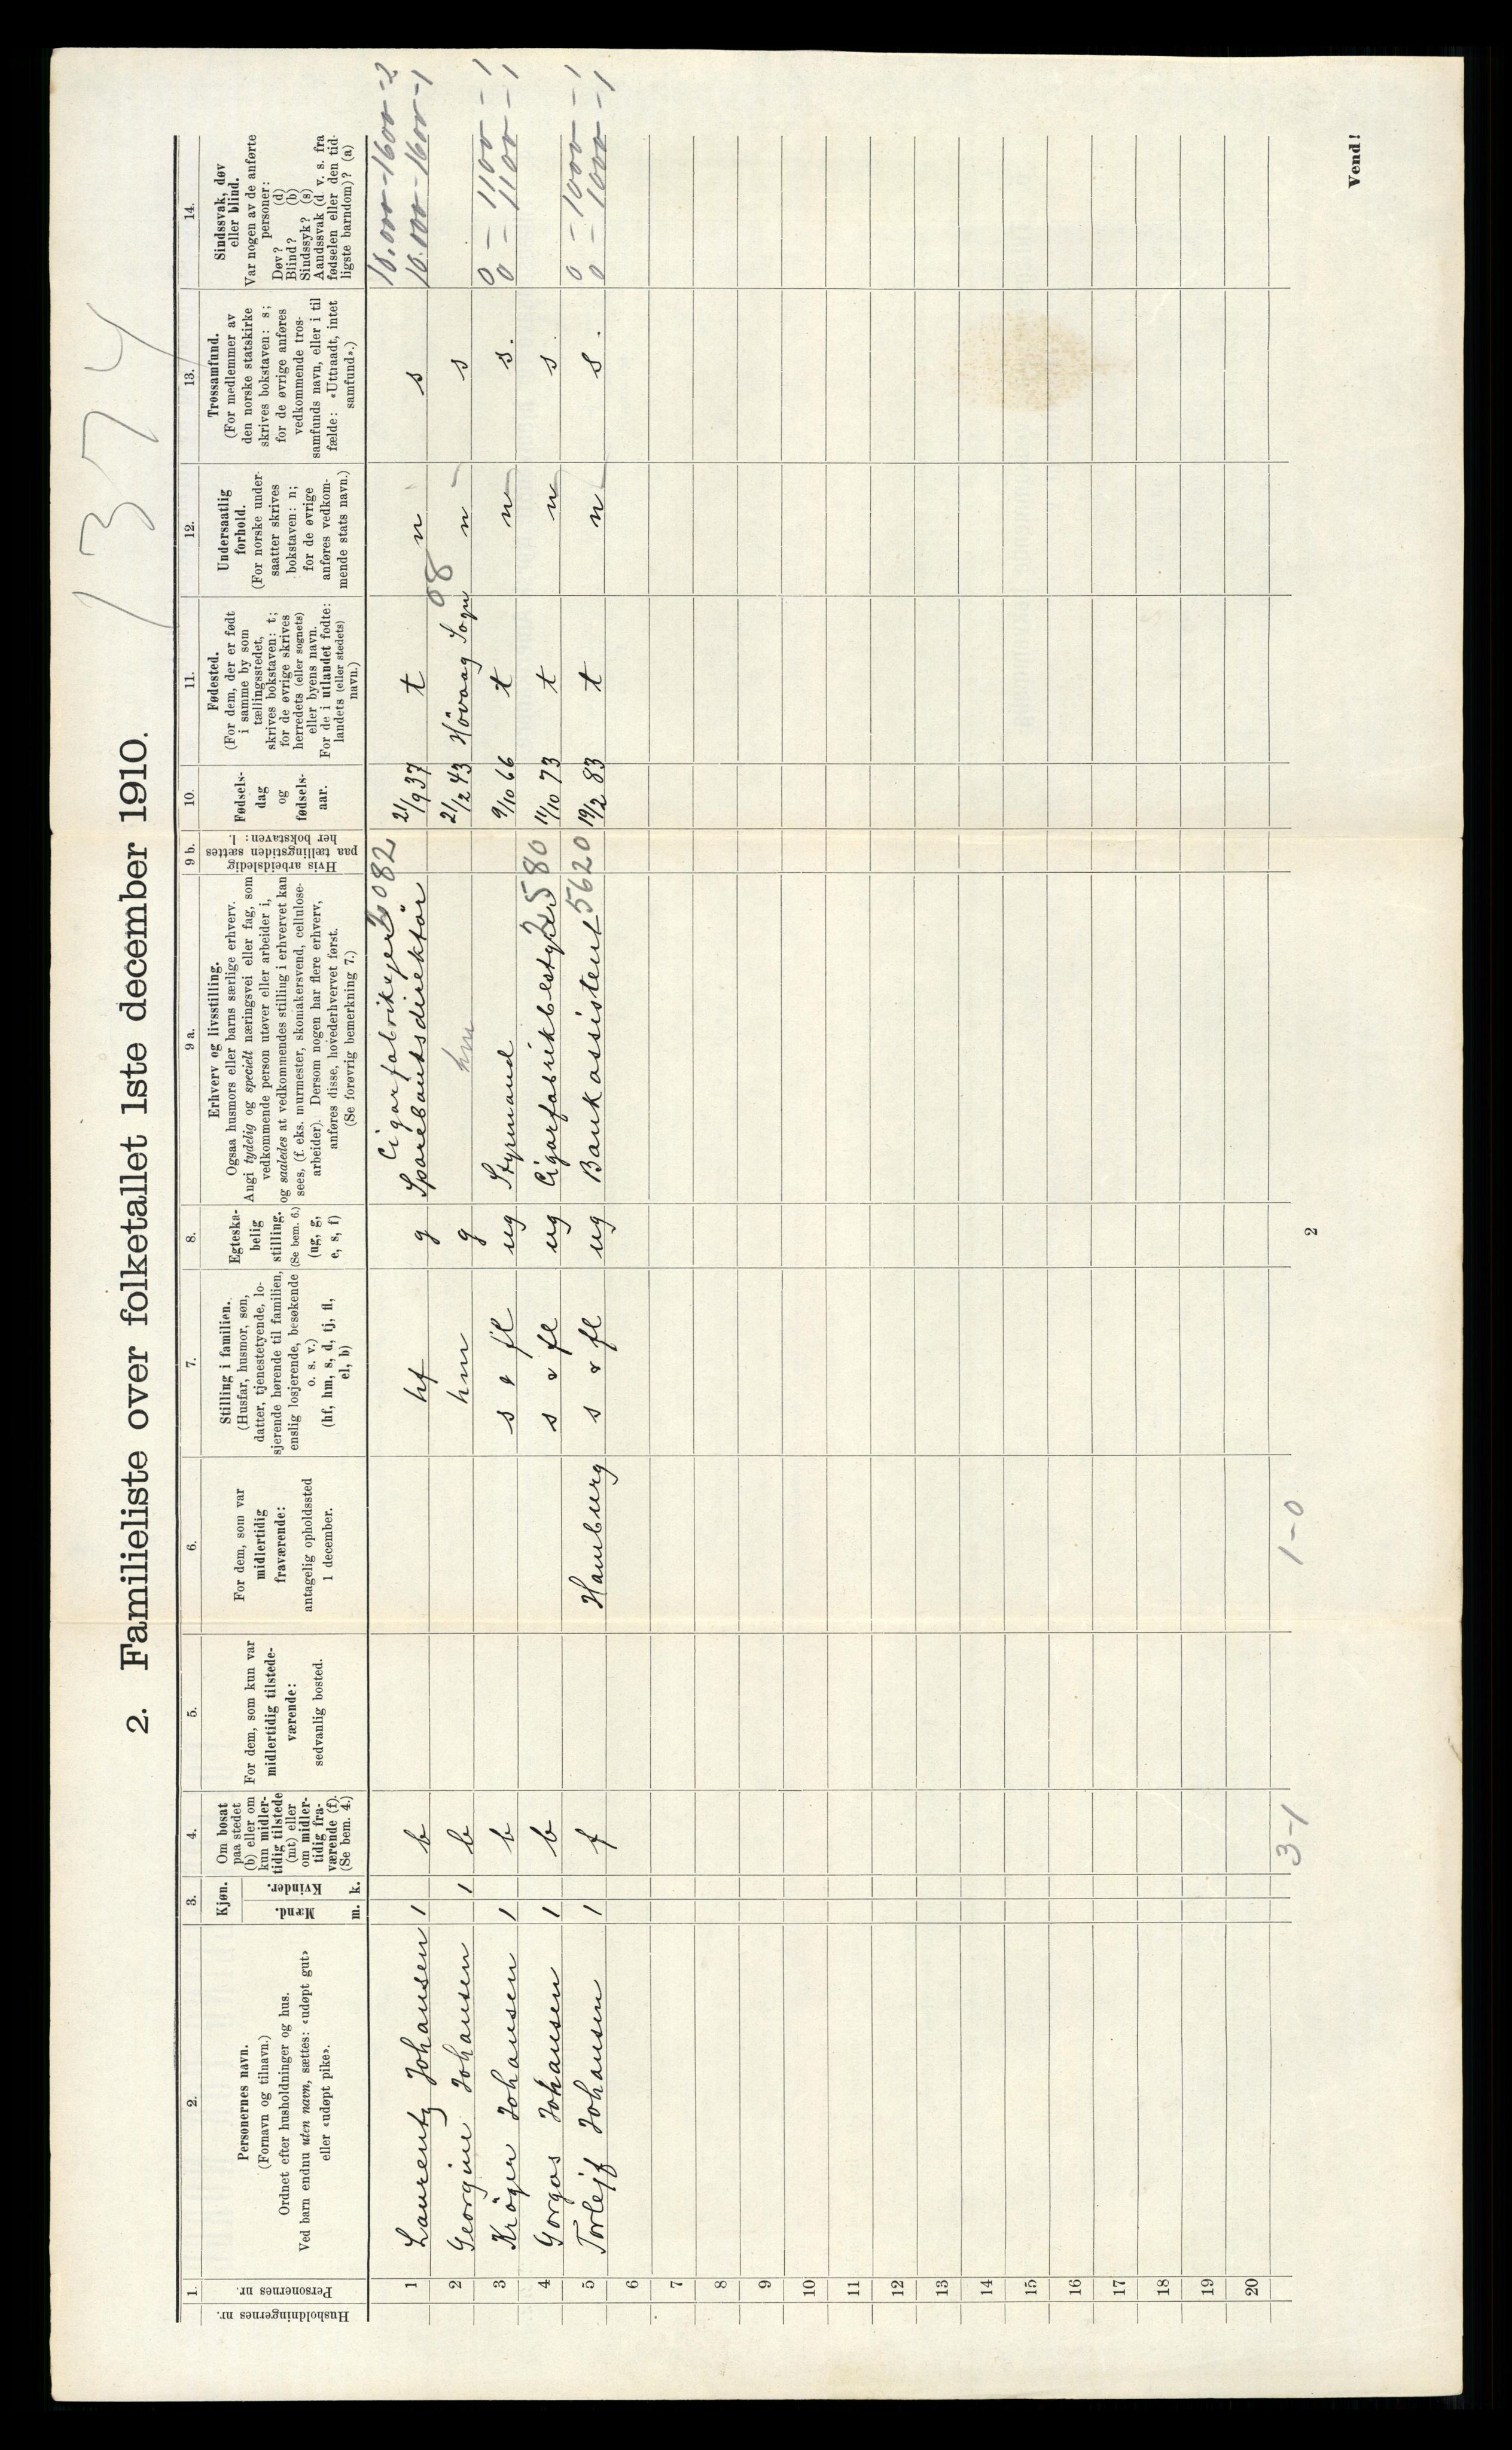 1374
2. Familieliste over folketallet 1ste december 1910.
Husholdningernes nr.
1.
Personernes nr.
2.
Personernes navn.
(Fornavn og tilnavn.)
Ordnet efter husholdninger og hus.
Ved barn endnu uten navn, sættes: «udøpt gut»
eller «udøpt pike».
3.
Kjøn.
Mænd.
Kvinder.
m. k.
4.
Om bosat
paa stedet
(b) eller om
kun midler-
tidig tilstede
(mt) eller
om midler-
tidig fra-
værende (f).
(Se bem. 4.)
5.
For dem, som kun var
midlertidig tilstede-
værende:
sedvanlig bosted.
6.
For dem, som var
midlertidig
fraværende:
antagelig opholdssted
1 december.
7.
Stilling i familien.
(Husfar, husmor, søn,
datter, tjenestetyende, lo-
sjerende hørende til familien,
enslig losjerende, besøkende
o. s. v.)
(hf, hm, s, d, tj, fl,
el, b)
8.
Egteska-
belig
stilling.
(Se bem. 6.)
(ug, g,
e, s, f)
9 a.
Erhverv og livsstilling.
Ogsaa husmors eller barns særlige erhverv.
Angi tydelig og specielt næringsvei eller fag, som
vedkommende person utøver eller arbeider i,
og saaledes at vedkommendes stilling i erhvervet kan
sees, (f. eks. murmester, skomakersvend, cellulose-
arbeider). Dersom nogen har flere erhverv,
anføres disse, hovederhvervet først.
(Se forøvrig bemerkning 7.)
9 b.
Hvis arbeidsledig
paa tællingstiden sættes
her bokstaven: l.
10.
Fødsels-
dag
og
fødsels-
aar.
11.
Fødested.
(For dem, der er født
i samme by som
tællingsstedet,
skrives bokstaven: t;
for de øvrige skrives
herredets (eller sognets)
eller byens navn.
For de i utlandet fødte:
landets (eller stedets)
navn.)
12.
Undersaatlig
forhold.
(For norske under-
saatter skrives
bokstaven: n;
for de øvrige
anføres vedkom-
mende stats navn.)
13.
Trossamfund.
(For medlemmer av
den norske statskirke
skrives bokstaven: s;
for de øvrige anføres
vedkommende tros-
samfunds navn, eller i til
fælde: «Uttraadt, intet
samfund».)
14.
Sindssvak, døv
eller blind.
Var nogen av de anførte
personer:
Døv? (d)
Blind? (b)
Sindssyk? (s)
Aandssvak (d. v. s. fra
fødselen eller den tid-
ligste barndom)? (a)
Cigarfabrikejer 2082 18.000-1600-2
1 Laurentz Johansen 1 b hf g Sparebanksdirektör 21/9 37 t n s 10.000-1600-1
2 Georgine Johansen 1 b hm g hm 21/2 43 Hövaag Sogn 08 n s
3 Kröger Johansen 1 b s & fl ug Styrmand 9/10 66 t n s. 0 - 1100 - 1
0 - 1100 - 1
4 Gorgas Johansen 1 b s & fl ug Cigarfabrikbestyrer 2580 11/10 73 t n s.
5 Torlejf Johansen 1 f Hamburg s & fl ug Bankassistent 5620 19/2 83 t n s. 0 - 1000 - 1
0 - 1000 - 1
6
7
8
9
10
11
12
13
14
15
16
17
18
19
20
3-1 1-0
2
Vend!